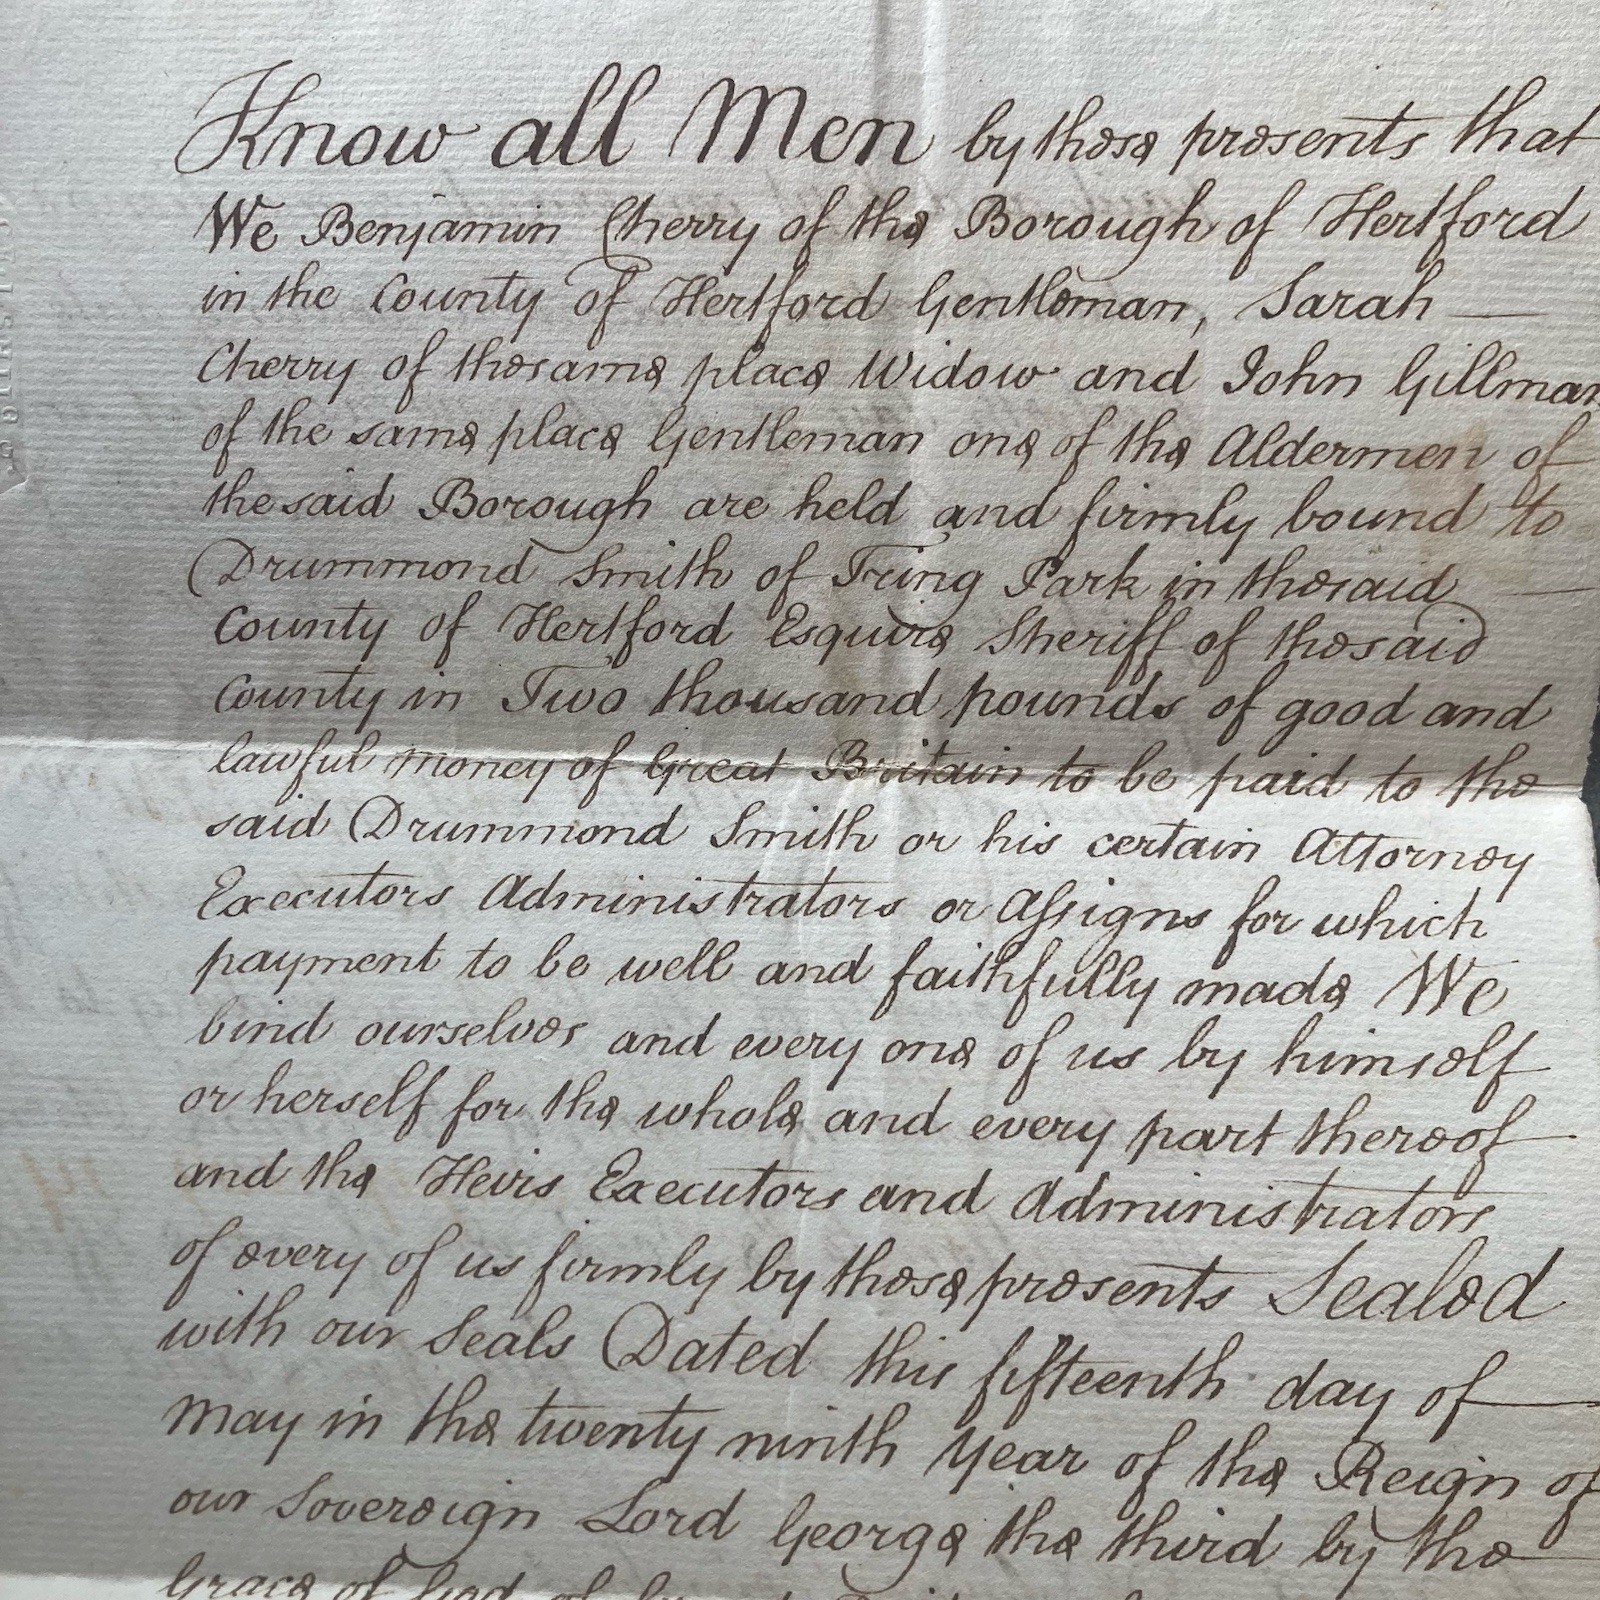 Know all Men by these presents that
We Benjamin Cherry of the Borough of Hertford
in the County of Hertford Gentleman, Sarah —
Cherry of the same place Widow and John Gillman
of the same place Gentleman one of the Aldermen of
the said Borough are held and firmly bound to
Drummond Smith of Tring Park in the said —
County of Hertford Esquire Sheriff of the said
County in Two thousand pounds of good and
lawful money of Great Britain to be paid to the
said Drummond Smith or his certain Attorney
Executors Administrators or Aſsigns for which
payment to be well and faithfully made We
bind ourselves and every one of us by himself
or herself for the whole and every part thereof
and the Heirs Executors and Administrators
of every of us firmly by these presents Sealed
with our Seals Dated this fifteenth day of —
May in the twenty ninth Year of the Reign of
our Sovereign Lord George the third by the
Grace of God of